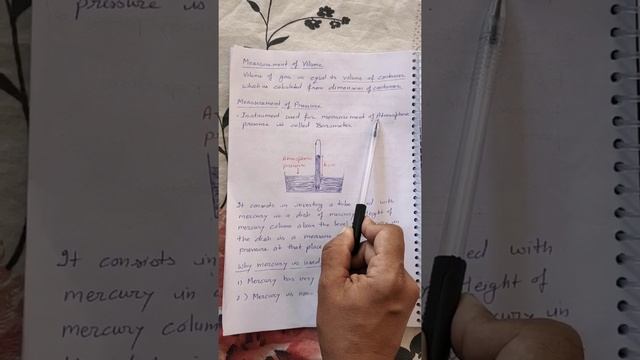 Measurement of Volume
Volume of gas is equal to volume of container
which is calculated from dimensions of container
Measurement of Pressure
- Instrument used for measurement of Atmospheric
pressure is called Barometer
Atmospheric
pressure
It consists in inverting a tube filled with
mercury in a dish of mercury. Height of
mercury column above the level of mercury in
the dish is a measure
pressure at that place
Why mercury is used
1) Mercury has very
2) Mercury is non-